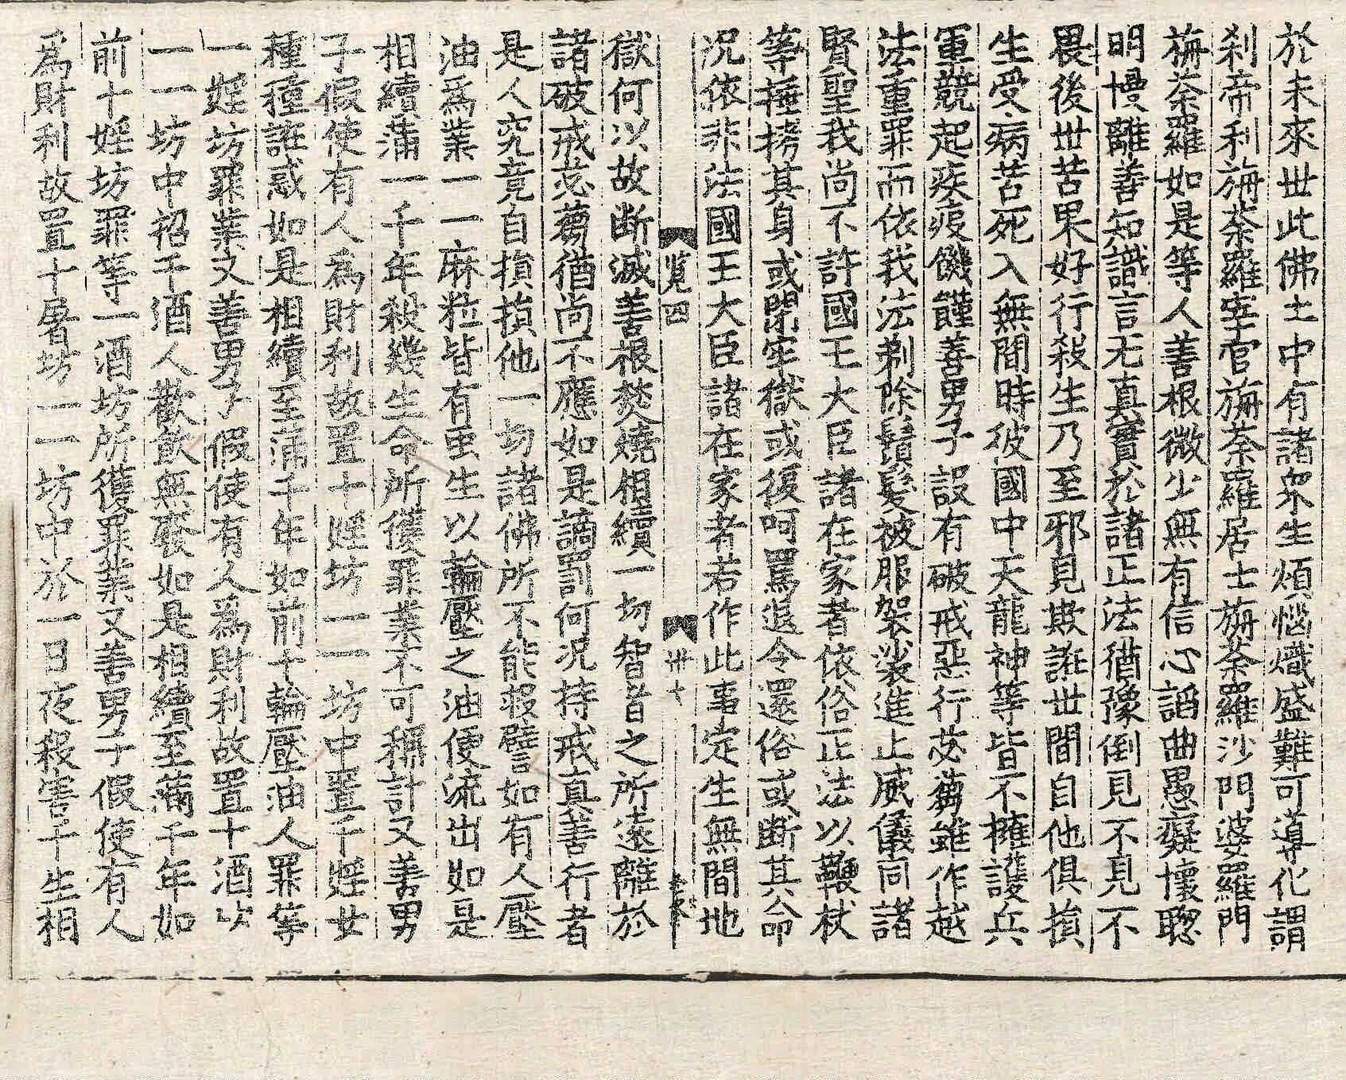 於未來世此佛土中有諸衆生煩惱熾盛難可導化謂
刹帝利旃荼羅宰官旃荼羅居士旃荼羅沙門婆羅門
旃荼羅如是等人善根微少無有信心謟曲愚癡懷聦
明慢離善知識言无真實於諸正法猶豫倒見不見不
畏後世苦果好行殺生乃至邪見欺誑世間自他俱損
生受病苦死入無間時彼國中天龍神等皆不擁護兵
軍競起疾疫饑饉善男子設有破戒惡行苾蒭雖作越
法重罪而依我法剃除鬚髮被服袈裟進止威儀同諸
賢聖我尚不許國王大臣諸在家者依俗正法以鞭杖
等捶搒其身或閉牢獄或復呵罵退令還俗或断其命
况依非法國王大臣諸在家者若作此事定生無間地
覽四 卅七
獄何以故断滅善根焚燒相續一切智者之所遠離於
諸破戒苾蒭猶尚不應如是謫罰何况持戒真善行者
是人究竟自損損他一切諸佛所不能救譬如有人壓
油爲業一一麻粒皆有虫生以輪壓之油便流出如是
相續滿一千年殺幾生命所獲罪業不可稱計又善男
子假使有人爲財利故置十婬坊一一坊中置千婬女
種種誑惑如是相續至滿千年如前十輪壓油人罪等
一婬坊罪業又善男子假使有人爲財利故置十酒坊
一一坊中招千酒人歡飲無廢如是相續至滿千年如
前十婬坊罪等一酒坊所獲罪業又善男子假使有人
爲財利故置十屠坊一一坊中於一日夜殺害千生相